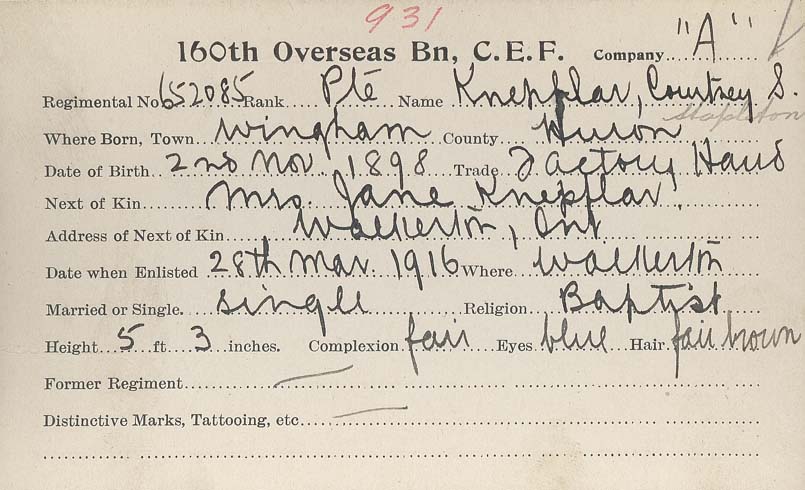 931
160th Overseas Bn, C.E.F. Company "A"
Regimental No. 652085 Rank Pte Name Knepflar, Courtney S.
Stapleton
Where Born, Town Wingham County Huron
Date of Birth 2nd Nov. 1898 Trade Factory Hand
Next of Kin Mrs. Jane Knepflar
Address of Next of Kin Walkerton, Ont
Date when Enlisted 28th Mar. 1916 Where Walkerton
Married or Single. single Religion Baptist
Height 5 ft 3 inches. Complexion fair Eyes blue Hair fair brown
Former Regiment —
Distinctive Marks, Tattooing, etc —